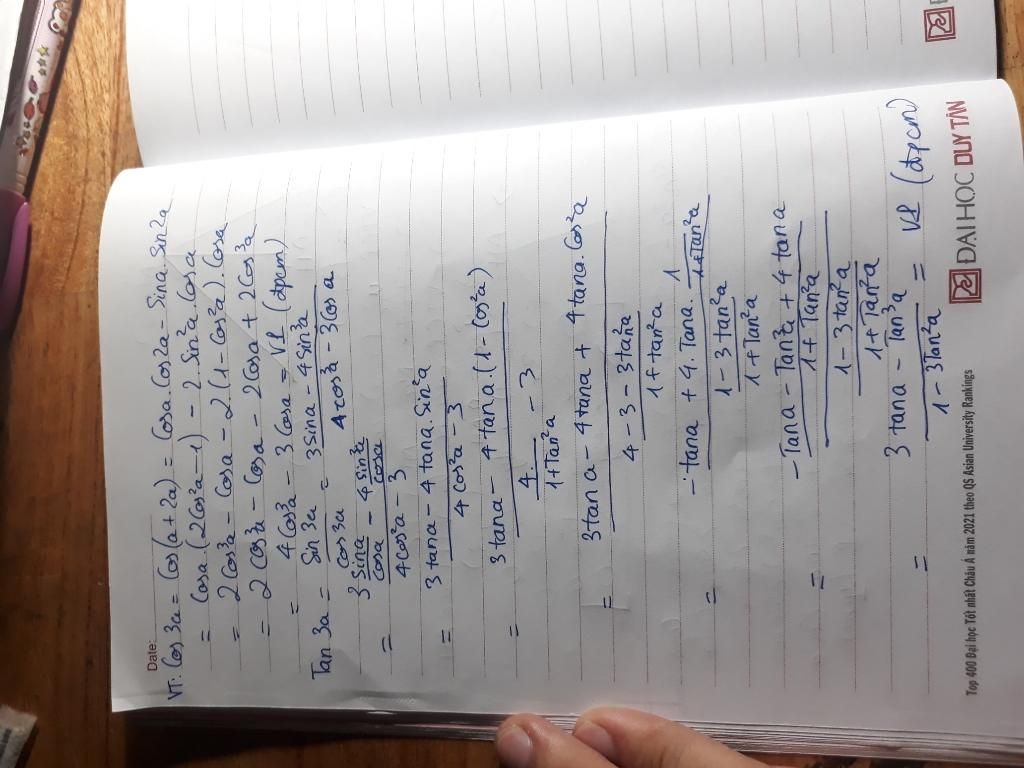 Date:
VT: Cos 3a = cos(a+2a) = cosa.cos2a - Sina.Sin2a
= cosa(2cos²a-1) - 2.Sin²a.cosa
= 2cos³a - cosa - 2.(1-cos²a).cosa
= 2cos³a - cosa - 2cosa + 2cos³a
= 4cos³a - 3cosa = VP (đpcm)
Tan3a = Sin3a / cos3a = (3Sina - 4Sin³a) / (4cos³a - 3cosa)
= (3 Sina/cosa - 4 Sin³a/cosa) / (4cos²a - 3)
= (3tana - 4tana.Sin²a) / (4cos²a - 3)
= (3tana - 4tana.(1-cos²a)) / (4./(1+Tan²a) - 3)
= (3tana - 4tana + 4tana.cos²a) / ((4-3-3tan²a)/(1+tan²a))
= (-tana + 4.Tana. 1/(1+Tan²a)) / ((1-3tan²a)/(1+Tan²a))
= ((-Tana - Tan³a + 4tana)/(1+Tan²a)) / ((1-3tan²a)/(1+Tan²a))
= (3tana - Tan³a) / (1-3Tan²a) = VP (đpcm)
Top 400 Đại học Tốt nhất Châu Á năm 2021 theo QS Asian University Rankings
ĐẠI HỌC DUY TÂN